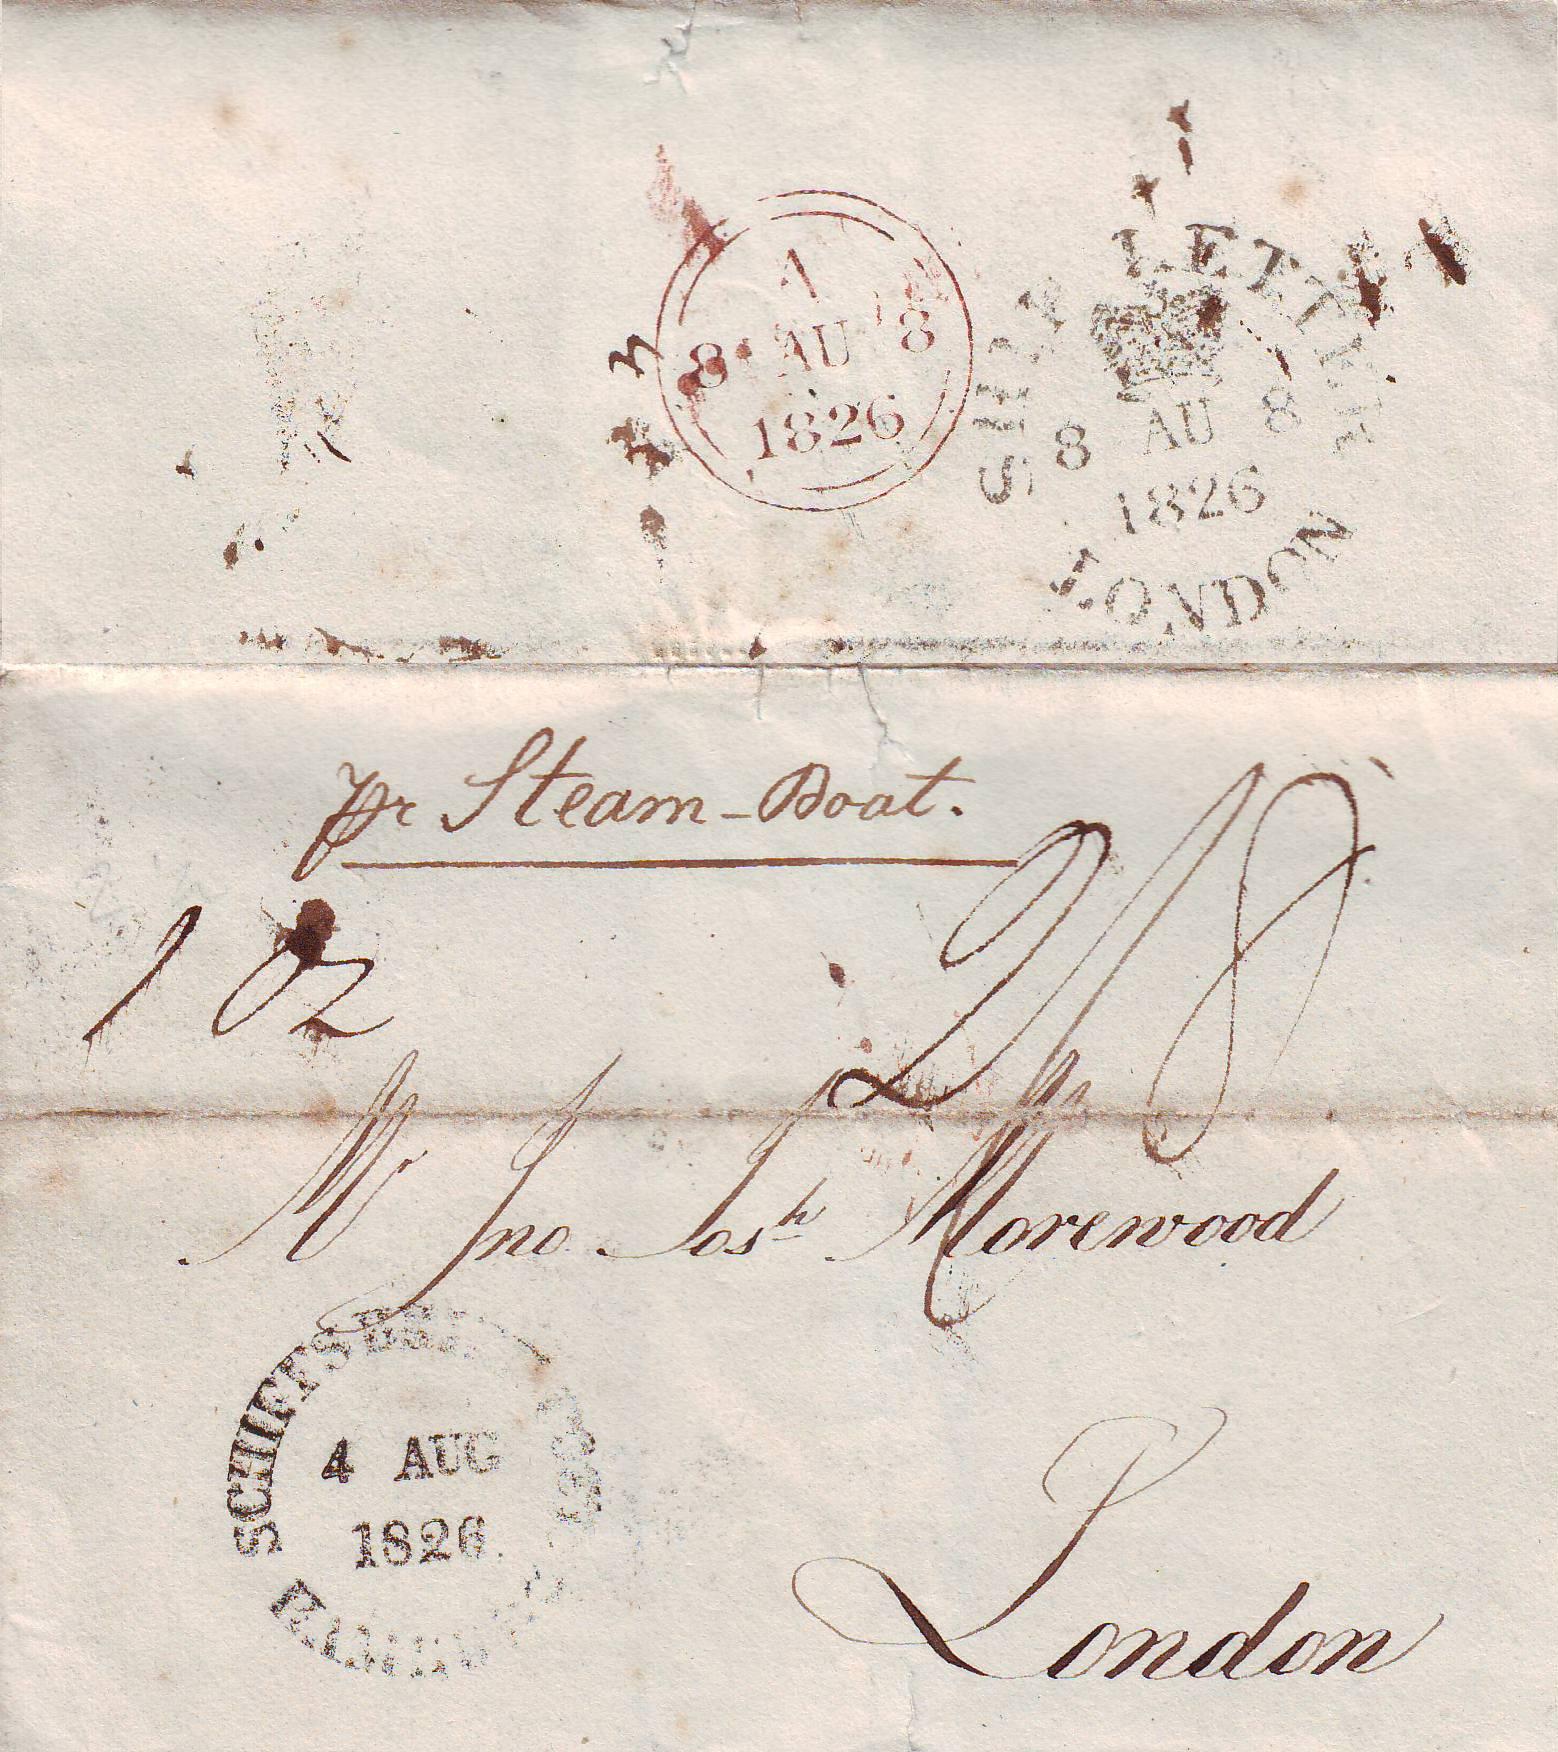 A
8 AU 8
1826
SHIP LETTER
8 AU 8
1826
LONDON
pr Steam-Boat.
2/8
1 oz
Mr Jno. Josh Morewood
SCHIFFSBRIEF POST
4 AUG
1826
HAMBURG
London